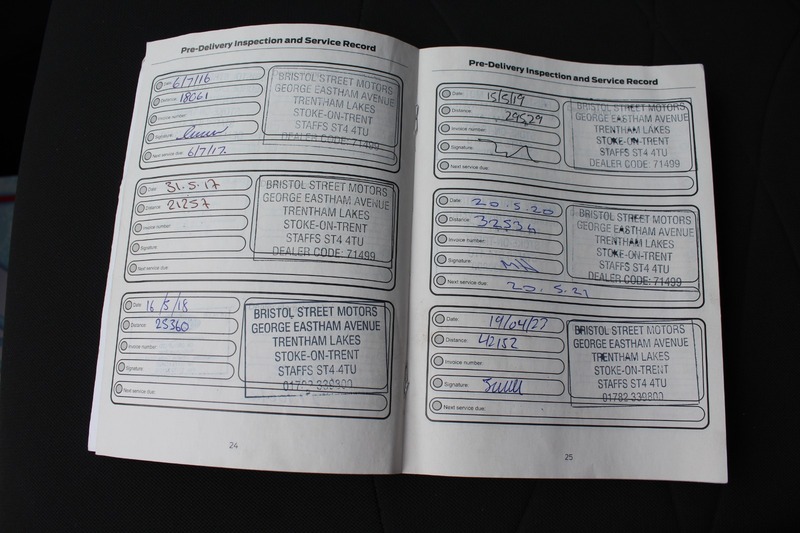 Pre-Delivery Inspection and Service Record
Date: 6/7/16
Distance: 18061
Invoice number:
Signature:
Next service due: 6/7/17.
BRISTOL STREET MOTORS
GEORGE EASTHAM AVENUE
TRENTHAM LAKES
STOKE-ON-TRENT
STAFFS ST4 4TU
DEALER CODE: 71499
Date: 31.5.17
Distance: 21257
Invoice number:
Signature:
Next service due:
BRISTOL STREET MOTORS
GEORGE EASTHAM AVENUE
TRENTHAM LAKES
STOKE-ON-TRENT
STAFFS ST4 4TU
DEALER CODE: 71499
Date: 16/5/18
Distance: 25360
Invoice number:
Signature:
Next service due:
BRISTOL STREET MOTORS
GEORGE EASTHAM AVENUE
TRENTHAM LAKES
STOKE-ON-TRENT
STAFFS ST4 4TU
01782 339800
24
Pre-Delivery Inspection and Service Record
Date: 15/5/19
Distance: 29529
Invoice number:
Signature:
Next service due:
BRISTOL STREET MOTORS
GEORGE EASTHAM AVENUE
TRENTHAM LAKES
STOKE-ON-TRENT
STAFFS ST4 4TU
DEALER CODE: 71499
Date: 20.5.20
Distance: 32534
Invoice number:
Signature:
Next service due: 20.5.21
BRISTOL STREET MOTORS
GEORGE EASTHAM AVENUE
TRENTHAM LAKES
STOKE-ON-TRENT
STAFFS ST4 4TU
DEALER CODE: 71499
Date:
Distance: 42152
Invoice number:
Signature:
Next service due:
BRISTOL STREET MOTORS
GEORGE EASTHAM AVENUE
TRENTHAM LAKES
STOKE-ON-TRENT
STAFFS ST4 4TU
01782 339800
25